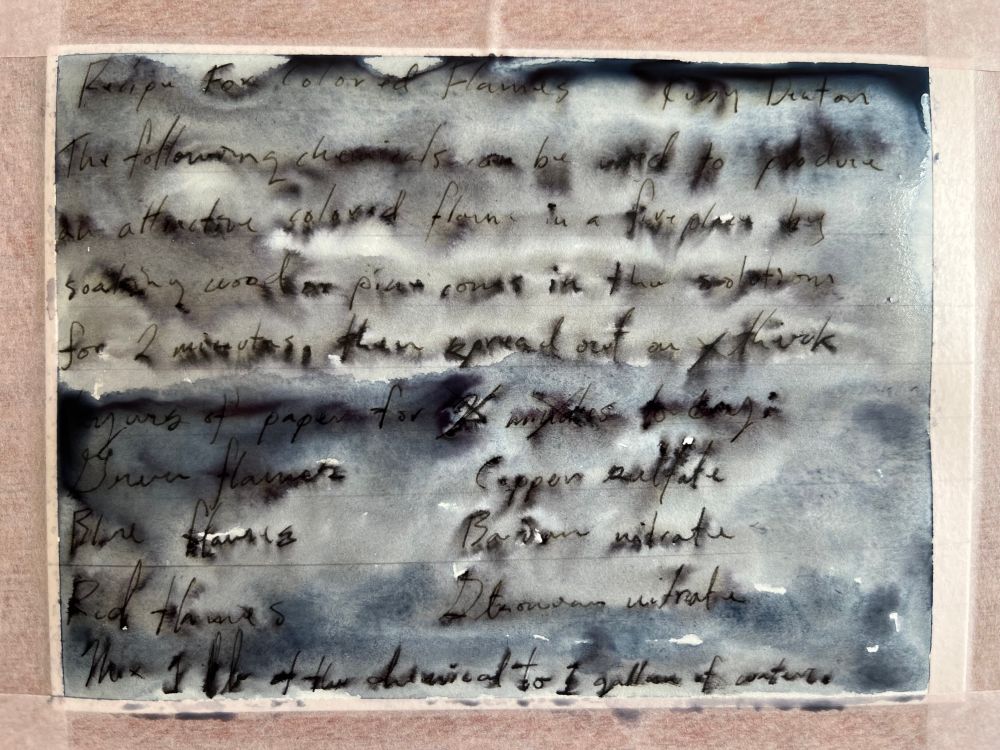 Recipe For Colored Flames
The following chemicals can be used to produce
an attractive colored flame in a fireplace by
soaking wood or pine cones in the solutions
for 2 minutes, then spread out on thick
layers of paper for minutes to dry:
Green flames Copper sulfate
Blue flames Barium nitrate
Red flames Stronium nitrate
Mix 1 lb of the chemical to 1 gallon of water.